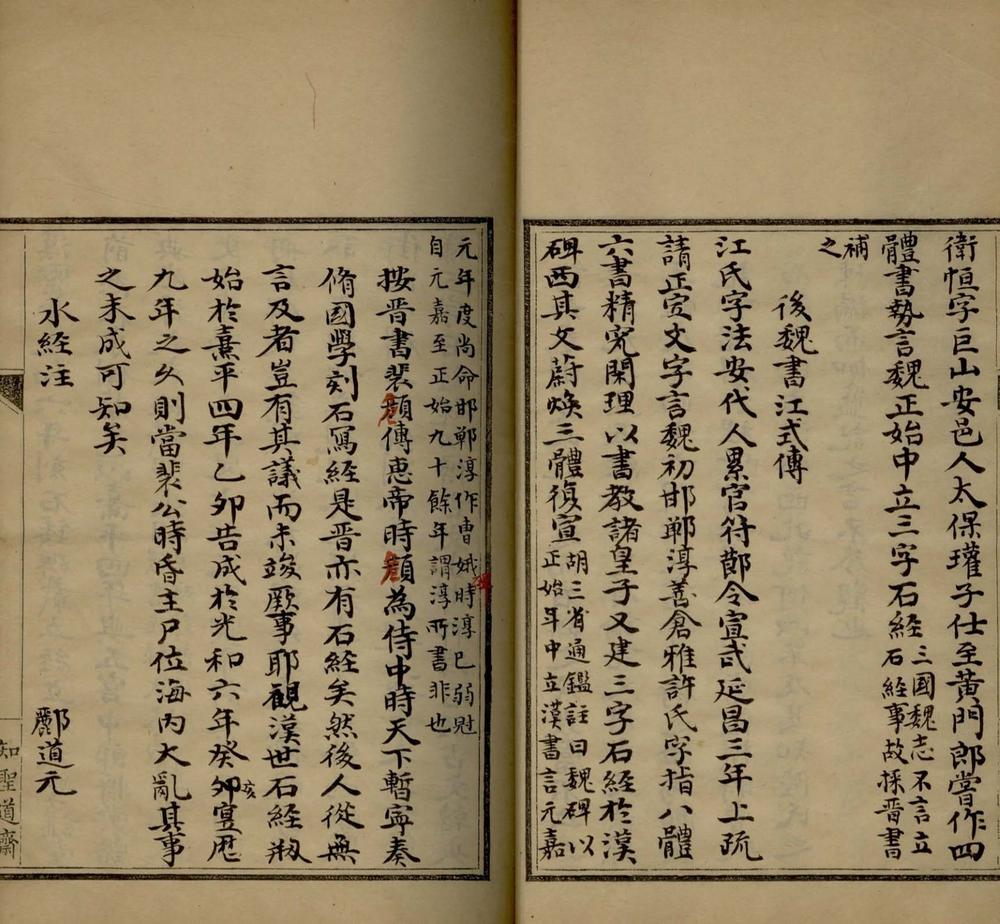 衛恒字巨山安邑人太保瓘子仕至黃門郎嘗作四
體書勢言魏正始中立三字石經三國魏志不言立
石經事故採晉書
補
之
後魏書江式傳
江氏字法安代人累官符節令宣武延昌三年上疏
請正定文字言魏初邯鄲淳善倉雅許氏字指八體
六書精究閑理以書教諸皇子又建三字石經於漢
碑西其文蔚煥三體復宣胡三省通鑑註曰魏碑以
正始年中立漢書言元嘉
元年度尚命邯鄲淳作曹娥時淳已弱冠
自元嘉至正始九十餘年謂淳所書非也
碑
按晉書裴頠傳惠帝時頠為侍中時天下暫寧奏
脩國學刻石寫經是晉亦有石經矣然後人從無
言及者豈有其議而未竣厥事耶觀漢世石經刱
始於熹平四年乙卯告成於光和六年癸卯寔歷
亥
九年之久則當裴公時昏主尸位海內大亂其事
之未成可知矣
水經注
酈道元
知聖道齋